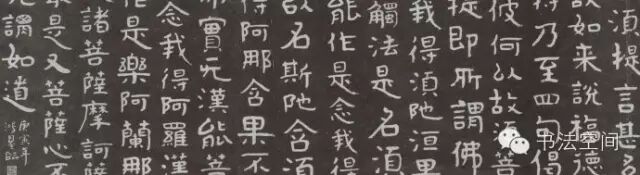 須提言甚多
故如来說福德
得乃至四句偈
彼何以故須菩
提即所謂佛
觸法是名須
我得須陁洹果
能作是念我得
故名斯陁含須
得阿那含果不
實无漢能菩
念我得阿羅漢
是樂阿蘭那
諸菩薩摩訶薩
是又菩薩心不
謂如道
庚寅年
臨
书法空间